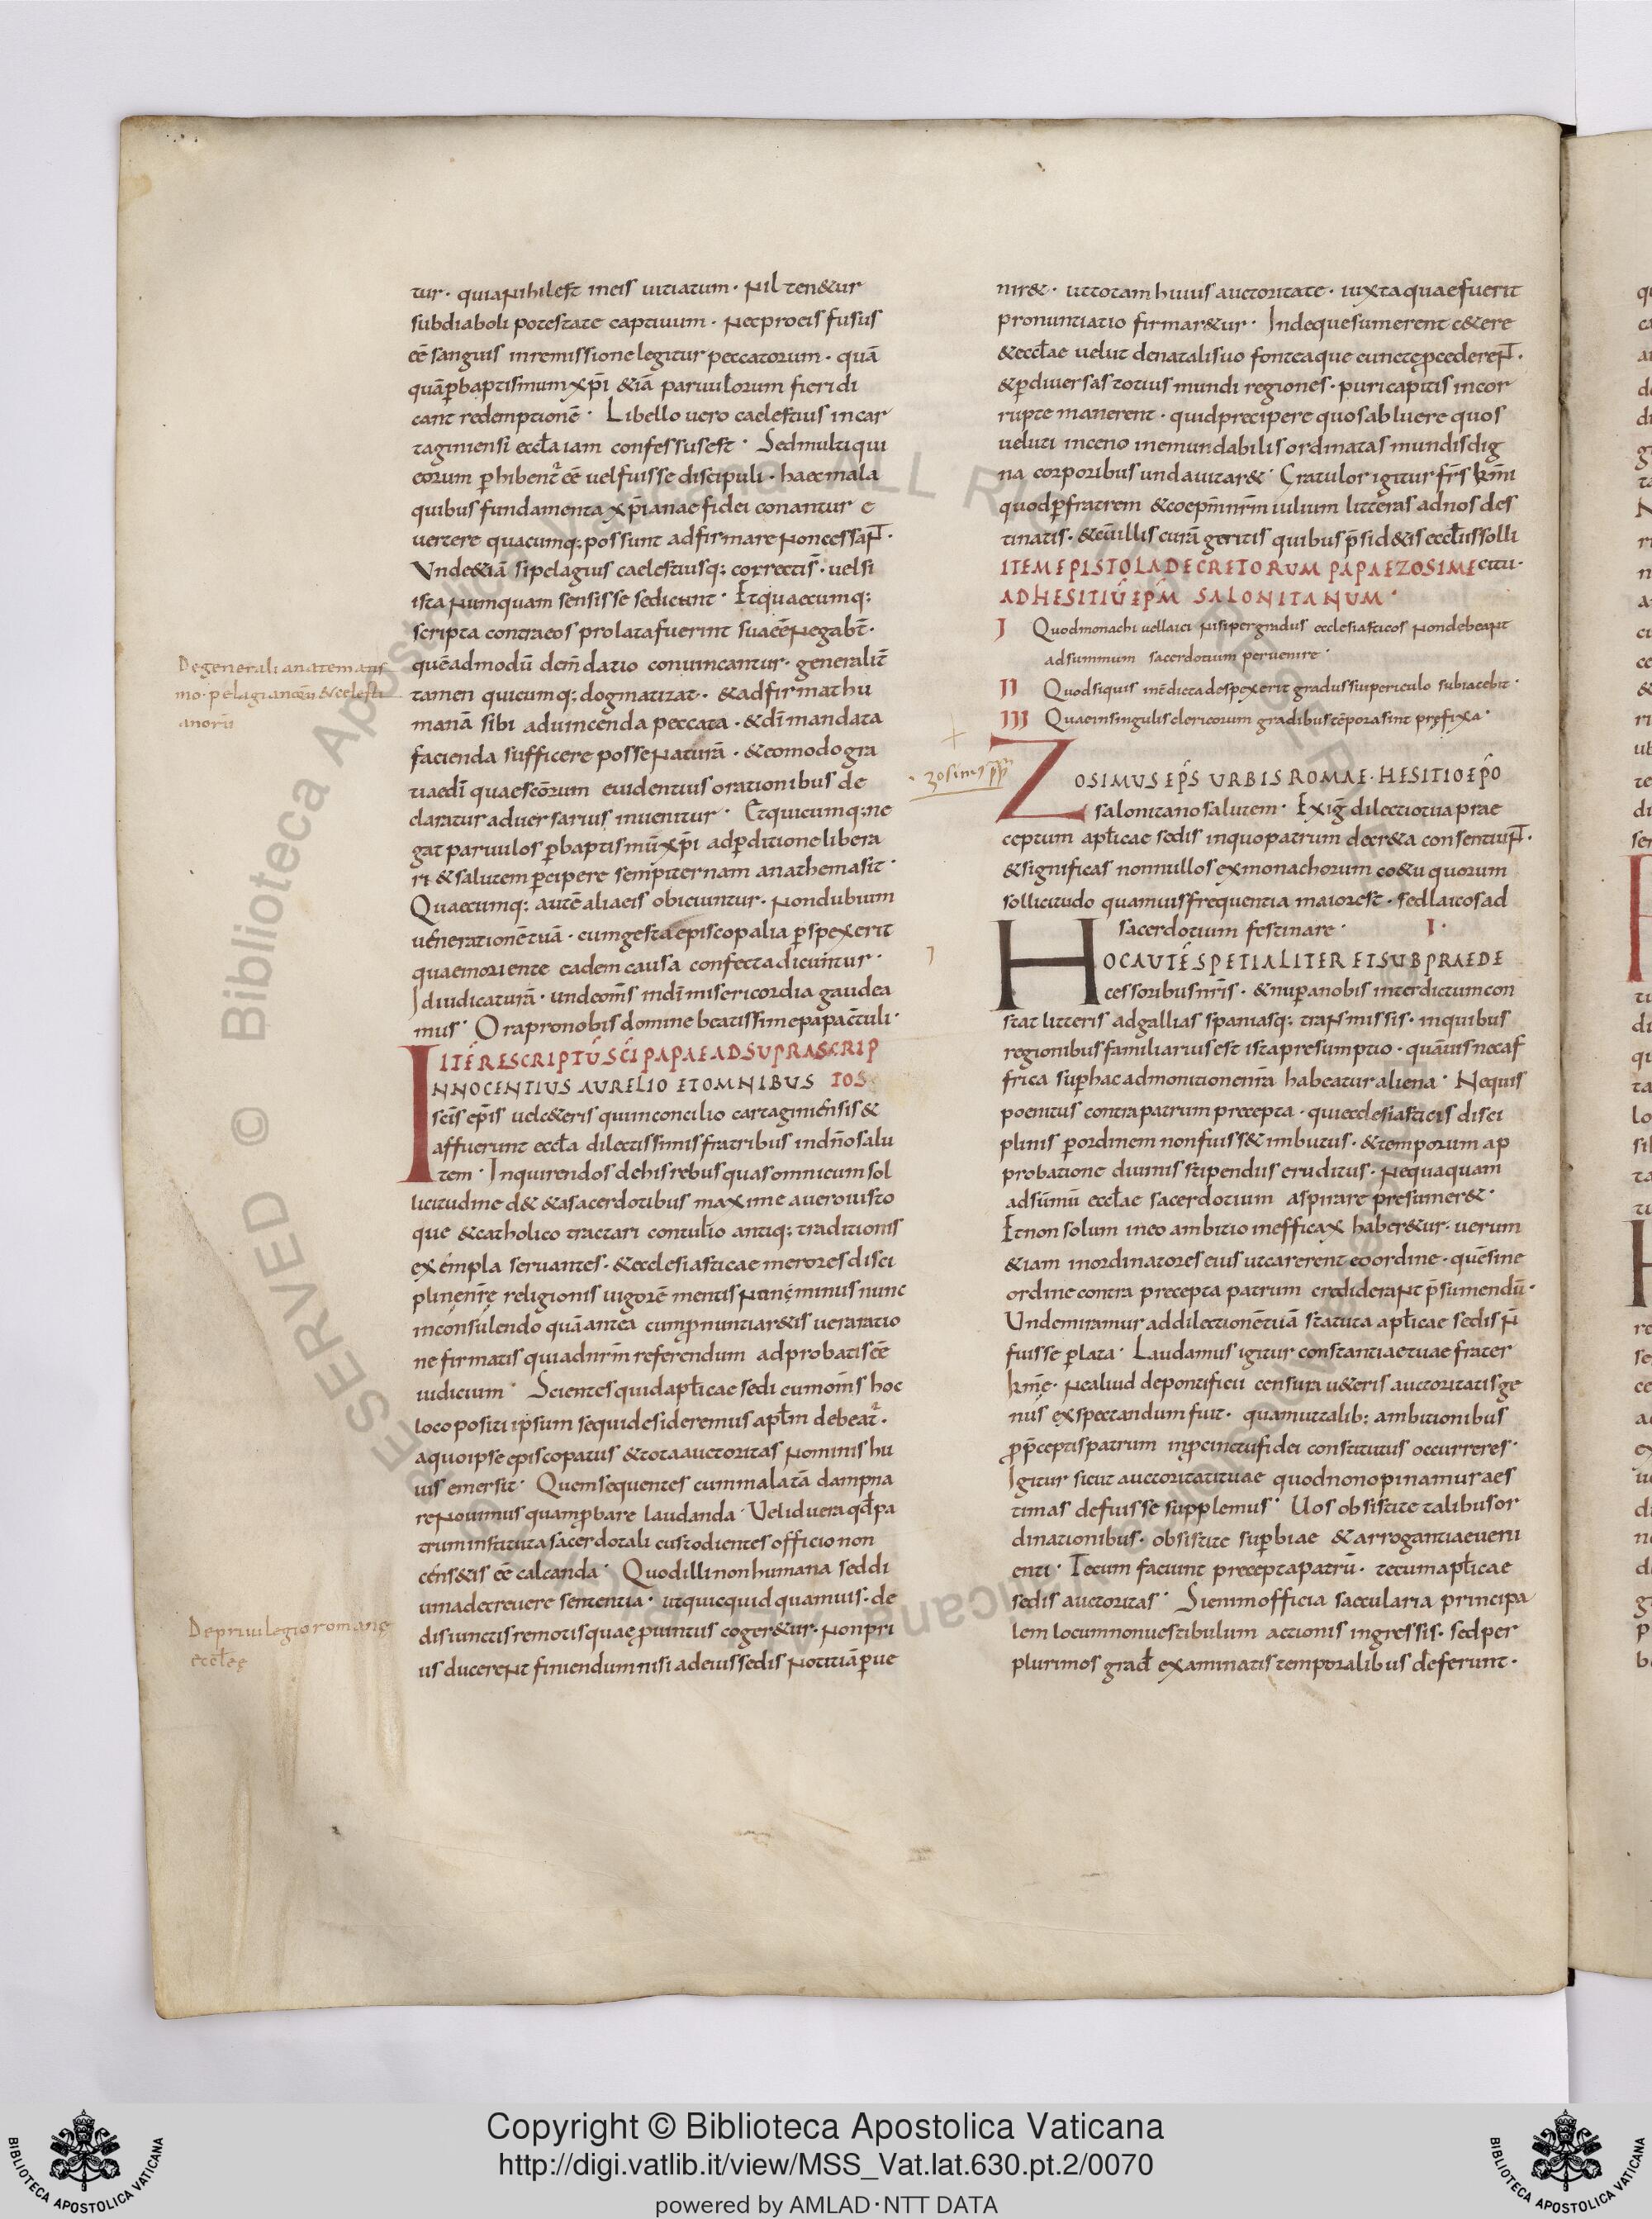 tur · quia nihil est in eis uitiatum · Nil ten&ur
sub diaboli potestate captiuum · Nec pro eis fusus
eē sanguis in remissione legitur peccatorum · quā
quā p baptismum xp̄i &iā paruulorum fieri di
cant redemptionē · Libello uero caelestius in car
taginiensi eccl̄a iam confessus est · Sed multi qui
eorum phibent̄ eē uel fuisse discipuli · haec mala
quibus fundamenta xp̄ianae fidei conantur e
uertere quacumq; possunt adfirmare Non cessaNT ·
Vnde &iā si pelagius caelestiusq; correcti s̄ · uel si
ista Numquam sensisse se dicunt · Et quaecumq;
scripta contra eos prolata fuerint sua eē Negabt̄ ·
De generali anatematis
mo · pelagianorū & celesti
anorū
quēadmodū dem̄datio conuincantur · generalit̄
tamen quicumq; dogmatizat · & adfirmat hu
manā sibi ad uincenda peccata · & dī mandata
facienda sufficere posse Naturā · & eo modo gra
tiae dī quae sc̄orum euidentius orationibus de
claratur aduersarius inuenitur · Et quicumq; ne
gat paruulos p baptismū xp̄i ad pditione libera
ri & salutem pcipere sempiternam anathema sit ·
Quaecumq; autē alia eis obiciuntur · Non dubium
uenerationē tuā · cum gesta episcopalia pspexerit
quae in oriente eadem causa confecta dicuntur ·
Idiudicaturā · unde om̄s in dī misericordia gaudea
mus · Ora pro nobis domine beatissime papa et̄ tuli ·
ITĒ RESCRIPTŪ SC̄I PAPAE AD SUPRASCRIP
TOS
INNOCENTIUS AURELIO ET OMNIBUS
sc̄is ep̄is uel c&eris qui in concilio cartaginensis &
affuerunt eccl̄a dilectissimis fratribus in dn̄o salu
tem · Inquirendos de his rebus quas omni cum sol
licitudine d& & a sacerdotibus maxime a uero iusto
que & catholico tractari contulio antiq; traditionis
exempla seruantes · & ecclesiasticae merores disci
pline nr̄ę religionis uigorē mentis Nunc minus nunc
inconsulendo quā antea cum pnuntiar&is uera ratio
ne firmatis qui ad nrm̄ referendum adprobatis eē
iudicium · Scientes quid apl̄icae sedi cum om̄s hoc
loco positi ipsum sequi desideremus apl̄m debeat̄ ·
a quo ipse episcopatus & tota auctoritas Nominis hu
ius emersit · Quem sequentes cum mala tā dampna
re Nouimus quam pbare laudanda · Vel id uera qd̄ pa
trum instituta sacerdotali custodientes officio non
cens&is eē calcanda · Quod illi non humana sed di
uina decreuere sententia · ut quicquid quamuis · de
De priuilegio romanę
eccl̄eę
disiunctis remotisquae puintiis coger&ur · Non pri
us ducereNt finiendum nisi ad eius sedis Notitiā pue
nir& · ut totam huius auctoritate · iuxta quae fuerit
pronuntiatio firmar&ur · Indeque sumerent c&ere
& eccl̄ae uelut de natali suo fonte aque cunctę pcedereNT ·
& p diuersas totius mundi regiones · puri capitis incor
rupte manerent · quid precipere quos abluere quos
ueluti in ceno inemundabilis ordinatas mundis dig
na corporibus unda uitar& · Gratulor igitur frs̄ km̄i
quod p fratrem & coepm̄ nrm̄ iulium litteras ad nos des
tinatis · & cū illis curā geritis quibus p̄sid&is eccl̄iis solli
citu ·
ITEM EPISTOLA DECRETORUM PAPAE ZOSIME
AD HESITIŪ EPM̄ SALONITANUM ·
I Quod monachi uel laici Nisi per gradus ecclesiasticos Non debeaNt
ad summum sacerdotium peruenire ·
II Quod si quis mēdicta despexerit gradus sui periculo subiacebit ·
III Quae in singulis clericorum gradibus tēpora sint pręfixa ·
zosimus pp
ZOSIMUS EPS̄ URBIS ROMAE · HESITIO EPO
salonitano salutem · Exiḡ dilectio tua prae
ceptum apl̄icae sedis in quo patrum decr&a consentiuNT ·
& significas nonnullos ex monachorum co&u quorum
sollicitudo quamuis frequentia maior est · sed laicos ad
sacerdotium festinare · I ·
HOC AUTĒ SPETIALITER ET SUB PRAEDE
cessoribus nr̄is · & nup a nobis interdictum con
stat litteris ad gallias spaniasq; traNsmissis · in quibus
regionibus familiarius est ista presumptio · quāuis nec af
frica sup hac admonitione nr̄a habeatur aliena · Ne quis
poenitus contra patrum precepta · qui ecclesiasticis disci
plinis p ordinem non fuiss& imbutus · & temporum ap
probatione diuinis stipendiis eruditus · Nequaquam
ad sūmū eccl̄ae sacerdotium aspirare presumer& ·
Et non solum in eo ambitio inefficax haber&ur · uerum
&iam in ordinatores eius ut carerent eo ordine · quē sine
ordine contra precepta patrum crediderаNt p̄sumendū ·
Unde miramur ad dilectionē tuā statuta apl̄icae sedis N̄
fuisse plata · Laudamus igitur constantiae tuae frater
km̄e · Ne aliud de pontificii censura u&eris auctoritatis ge
nus exspectandum fuit · quam ut talib; ambitionibus
p p̄ceptis patrum in pcinctu fidei constitutus occurreres ·
Igitur si cut auctoritati tuae quod non opinamur aes
timas defuisse supplemus · Uos obsistite talibus or
dinationibus · obsistite supbiae & arrogantiae ueni
enti · Tecum faciunt precepta patrū · tecum apl̄icae
sedis auctoritas · Si enim officia saecularia principa
lem locum non uestibulum actionis ingressis · sed per
plurimos grad̄ examinatis temporalibus deferunt ·
Copyright © Biblioteca Apostolica Vaticana
http://digi.vatlib.it/view/MSS_Vat.lat.630.pt.2/0070
powered by AMLAD·NTT DATA